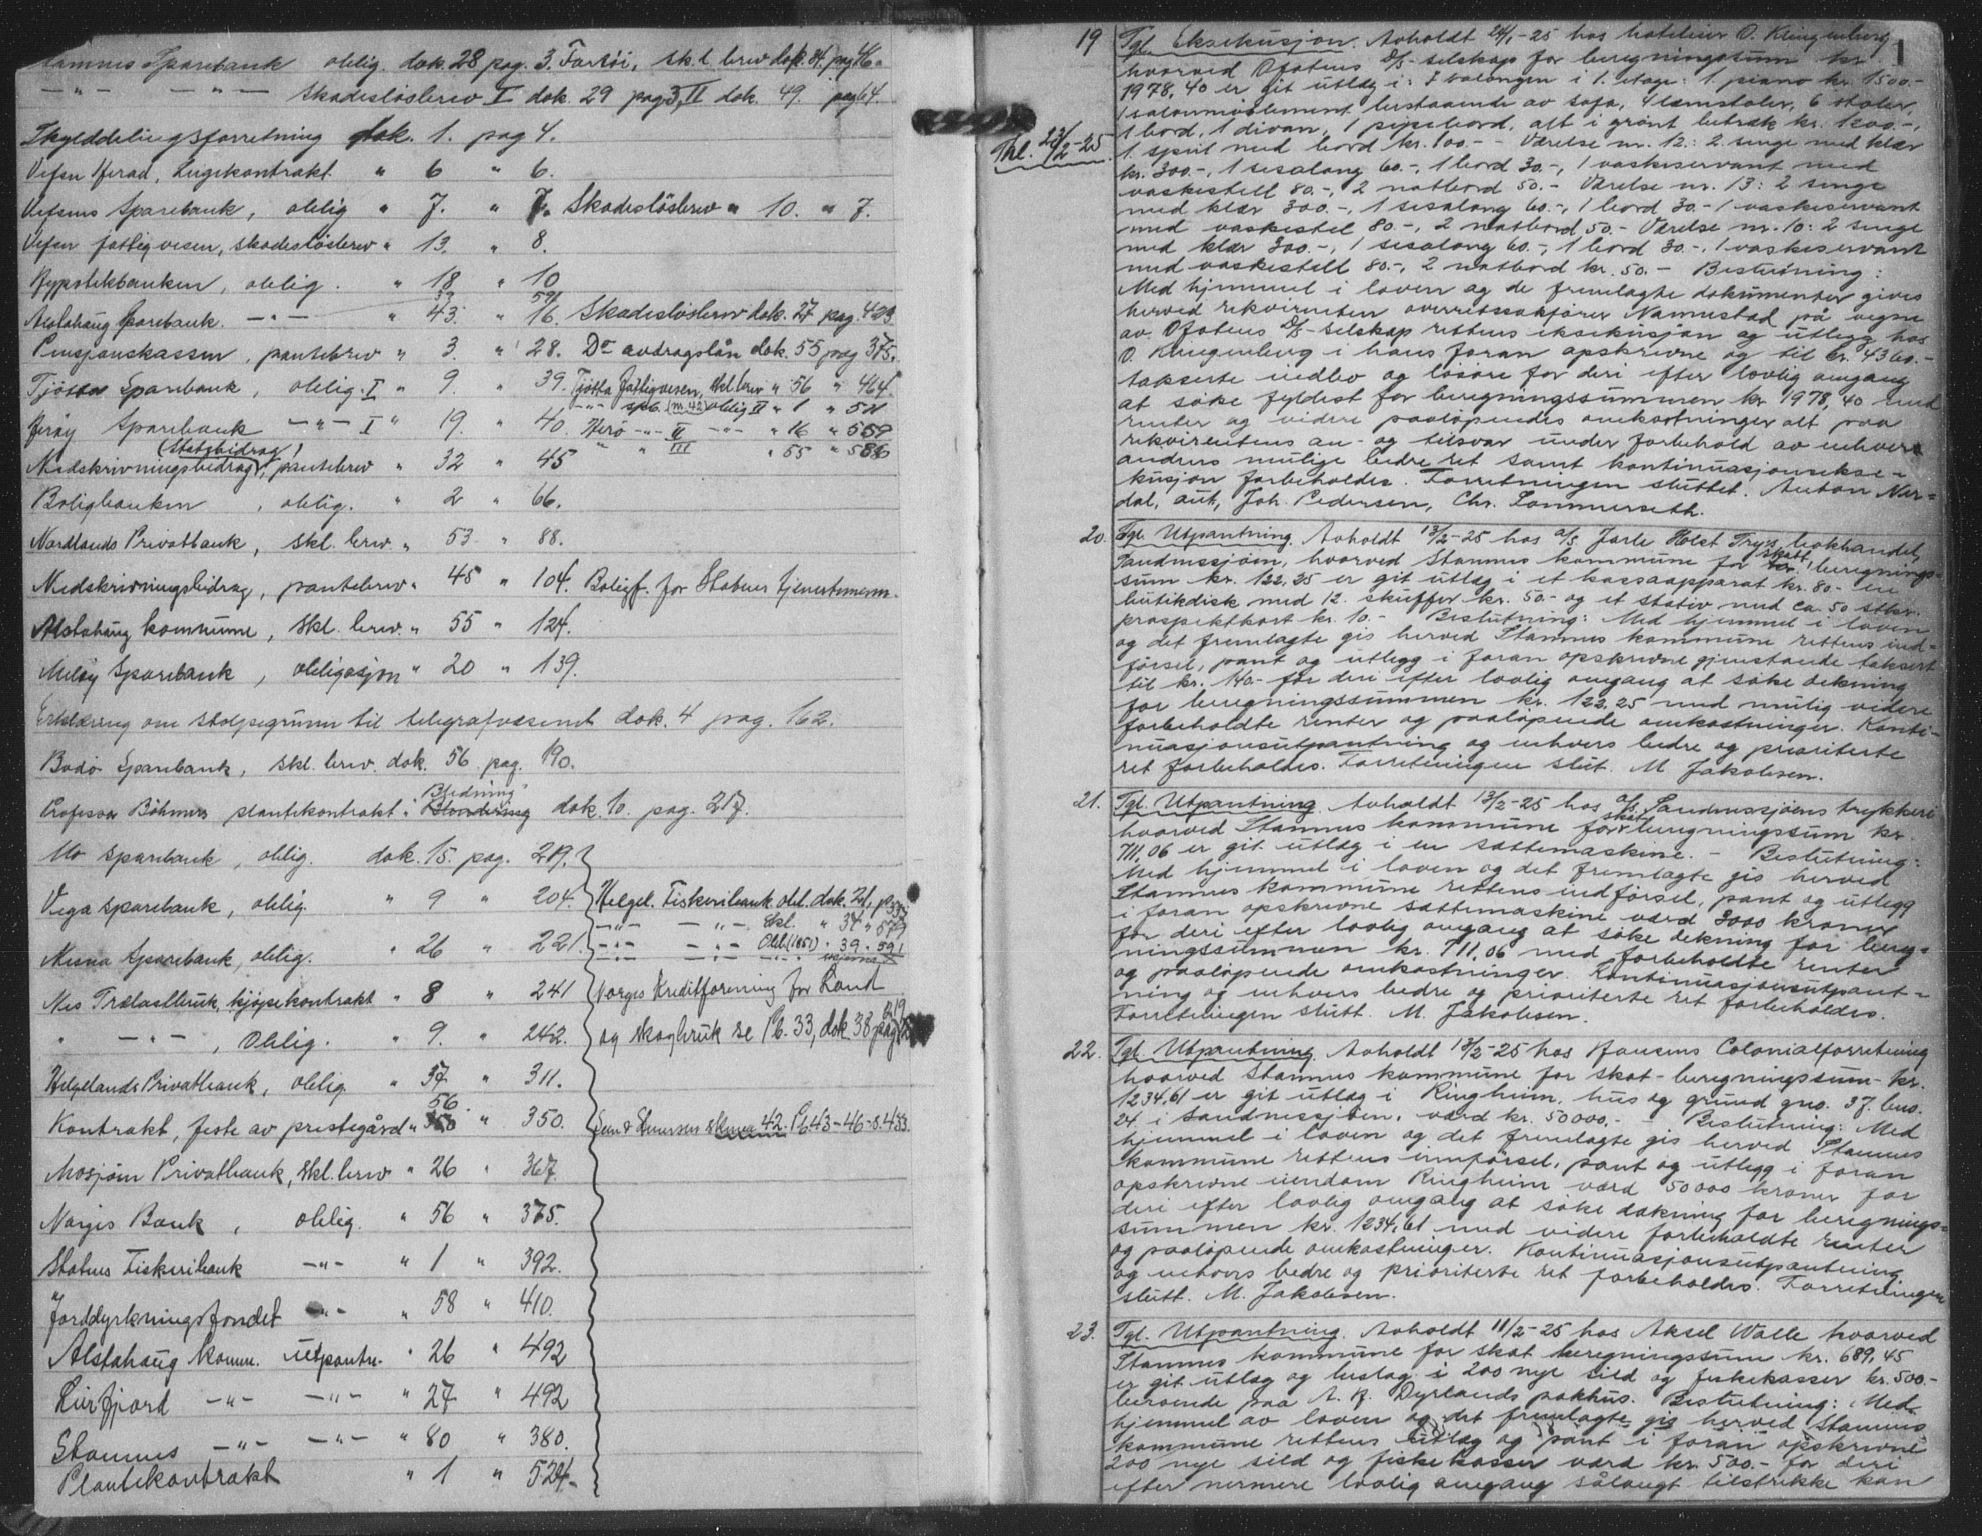 Stamnes Sparebank oblig. dok. 28 pag. 3. Fartöi, sk.l. brev dok. 34. pag 46.
—"— —"— Skadeslösbrev I dok. 29 pag 3, II dok. 49. pag 64.
Skylddelingsforretning dok. 1. pag 4.
Vefsn Herad, Lugekontrakt " 6 " 6.
Vefsens Sparebank, oblig " 7. " 7. Skadeslösbrev " 10. " 7.
Vefsn fattigvesen, skadeslösbrev " 13. " 8.
Hypotekbanken, oblig. " 18 " 10
Alstahaug Sparebank. —"— " 43. " 16. Skadeslösbrev dok. 27 pag. 429
Pensjonskassen, pantebrev " 3. " 28. Do avdragslån dok. 55 pag 375.
Tjötta Sparebank, oblig. I " 9. " 39. Tjötta fattigvesen, skl.brev " 56 " 464
—"— spb. (m. 42) oblig II " 1 " 521
Heröy Sparebank —"— I " 19. " 40. Herö —"— II —"— " 16 " 559
" " III " 55 " 566
(Statsbidrag)
Nedskrivningsbidrag, pantebrev " 32 " 45
Boligbanken, oblig. " 2 " 66.
Nordlands Privatbank, skl. brev " 53 " 88.
Nedskrivningsbidrag, pantebrev " 45 " 104. Boligf. for Statens tjenestemenn.
Alstahaug kommune, skl. brev. " 55 " 124.
Melöy Sparebank, obligasjon " 20 " 139.
Erklæring om stolpegrunn til telegrafvæsenet dok. 4 pag. 162.
Bodö Sparebank, skl. brev. dok. 56 pag. 190.
Professor Böhmers plantekontrakt dok. 10. pag. 217.
Mo Sparebank, oblig. dok. 15. pag. 219.
Vega Sparebank, oblig. " 9 " 204. Helgel. Fiskeribank obl. dok. 21, p. 335
—"— —"— Skl. " 34 " 579
Nesna Sparebank, oblig. " 26 " 221. —"— —"— Obl. (1851) " 39 " 591
Nes Trælastbruk, kjöpekontrakt " 8 " 241 Norges Kreditforening for Land
" —"—, Oblig. " 9. " 242. og skogbruk se Pb. 33, dok 38 pag 219
Helgelands Privatbank, oblig " 37 " 311.
Kontrakt, feste av prestegård " 56 " 350. 42. Pb 43-46-s. 433.
Mosjöen Privatbank, skl. brev " 26 " 367.
Norges Bank, oblig. " 56 " 375.
Statens Fiskeribank —"— " 1 " 392.
Jorddyrkningsfondet —"— " 58 " 410.
Alstahaug komm. utpantn. " 26 " 492
Leirfjord —"— —"— " 27 " 492
Stamnes —"— —"— " 80 " 380.
Plantekontrakt " 1 " 524.
1
19 Tgl. Eksekusjon. Avholdt 24/1-25 hos hoteleier O. Klingenberg
hvorved Ofotens D/S-selskap for beregningssum kr.
1978,40 er git utlæg i: I salongen i 1. etage: 1 piano kr. 1500.-
1 salonmöblement bestaaende av sofa, 4 lænestoler, 6 stoler,
1 bord, 1 divan, 1 pipebord, alt i grönt betræk kr. 1200.-,
Thl. 23/2-25. 1 speil med bord kr. 100.- - Værelse nr. 12: 2 senge med klær
kr. 300.-, 1 sisalong 60.-, 1 bord 30.-, 1 vaskeservant med
vaskestell 80.-, 2 natbord 50.- Værelse nr. 13: 2 senge
med klær 300.-, 1 sisalong 60.-, 1 bord 30.- 1 vaskeservant
med vaskestel 80.-, 2 natbord 50.- Værelse nr. 10: 2 senge
med klær 300.-, 1 sisalong 60.-, 1 bord 30.-, 1 vaskeservant
med vaskestell 80.-, 2 natbord kr. 50.- Beslutning:
Med hjemmel i loven og de fremlagte dokumenter gives
herved rekvirenten overretssakförer Nannestad på vegne
av Ofotens D/S-selskap rettens eksekusjon og utlegg hos
O. Klingenberg i hans foran opskrevne og til kr. 4360.-
takserte indbo og lösöre for deri efter lovlig omgang
at söke fyldest for beregningssummen kr. 1978,40 med
renter og videre paalöpendes omkostninger alt paa
rekvirentens an- og tilsvar under forbehold av enhver
andens mulige bedre ret samt kontinuasjonsekse-
kusjon forbeholdes. Forretningen sluttet. Anton Nær-
dal, aut, Joh. Pedersen, Chr. Sommerseth.
20. Tgl. Utpantning. Avholdt 13/2-25 hos a/s Jarle Holst Trys, bokhandel,
Sandnessjöen, hvorved Stamnes kommune for skatt, beregnings-
sum kr. 122,25 er git utlæg i et kassaapparat kr. 80.- en
butikdisk med 12. skuffer kr. 50.- og et stativ med ca. 50 stkr.
prospektkort kr. 10.- Beslutning: Med hjemmel i loven
og det fremlagte gis herved Stamnes kommune rettens ind-
försel, pant og utlegg i foran opskrevne gjenstande taksert
til kr. 140.- for deri efter lovlig omgang at söke dekning
for beregningssummen kr. 122,25 med mulig videre
forbeholdte renter og paalöpende omkostninger. Konti-
nuasjonsutpantning og enhvers bedre og prioriterte
ret forbeholdes. Forretningen slut. M. Jakobsen.
21. Tgl. Utpantning. Avholdt 13/2-25 hos a/s. Sandnessjöens trykkeri
hvorved Stamnes kommune for skat beregningssum kr.
711,06 er git utlæg i en sættemaskine. - Beslutning:
Med hjemmel i loven og det fremlagte gis herved
Stamnes kommune rettens indförsel, pant og utlegg
i foran opskrevne sættemaskine værd 3000 kroner
for deri efter lovlig omgang at söke dekning for bereg-
ningssummen kr. 711,06 med forbeholdte renter
og paalöpende omkostninger. Kontinuasjonsutpant-
ning og enhvers bedre og prioriterte ret forbeholdes.
Forretningen slutt. M. Jakobsen.
22. Tgl. Utpantning. Avholdt 13/2-25 hos Hansens Colonialforretning
hvorved Stamnes kommune for skat-beregningssum- kr.
1234,61 er git utlæg i Ringheim, hus og grund gno. 37. bno.
24. i Sandnessjöen, værd kr. 50000.- Beslutning: Med
hjemmel i loven og det fremlagte gis herved Stamnes
kommune rettens innförsel, pant og utlegg i foran
opskrevne eiendom Ringheim værd 50000 kroner for
deri efter lovlig omgang at söke dækning for beregnings-
summen kr. 1234,61 med videre forbeholdte renter
og paalöpende omkostninger. Kontinuasjonsutpantning
og enhvers bedre og prioriterte ret forbeholdes. Forretningen
slutt. M. Jakobsen.
23. Tgl. Utpantning. Avholdt 11/2-25 hos Aksel Walle hvorved
Stamnes kommune for skat beregningssum kr. 689,45
er git utlæg og beslag i 200 nye sild og fiskekasser kr. 500.-
beroende paa A. R. Dyrlands pakhus. Beslutning: Med
hjemmel av loven og det fremlagte gis herved Stamnes
kommune rettens utlæg og pant i foran opskrevne
200 nye sild og fiskekasser værd kr. 500.- for deri
efter nermere lovlig omgang sålangt tilstrekke kan